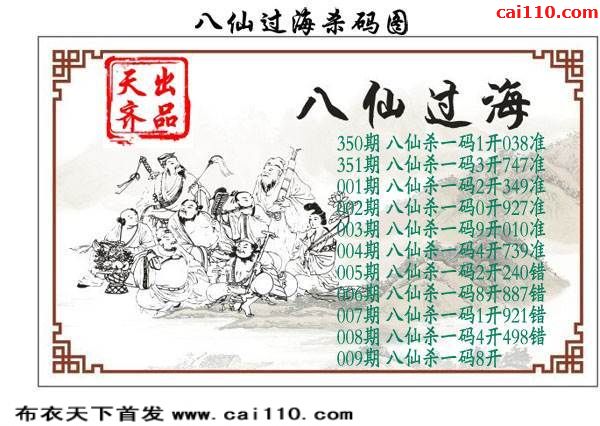 cai110.com
八仙过海杀码图
天出
齐品
八仙过海
350期 八仙杀一码1开038准
351期 八仙杀一码3开747准
001期 八仙杀一码2开349准
002期 八仙杀一码0开927准
003期 八仙杀一码9开010准
004期 八仙杀一码4开739准
005期 八仙杀一码2开240错
006期 八仙杀一码8开887错
007期 八仙杀一码1开921错
008期 八仙杀一码4开498错
009期 八仙杀一码8开
布衣天下首发 www.cai110.com